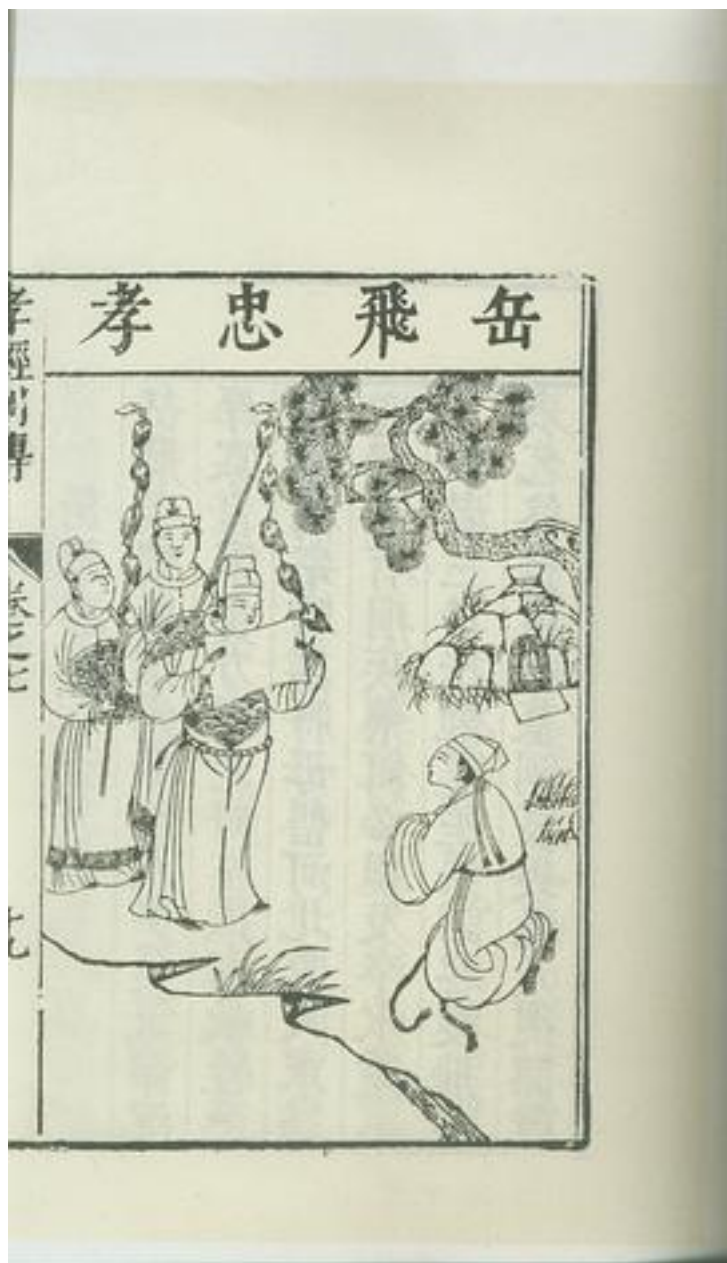 岳飛忠孝
孝經列傳
卷之七